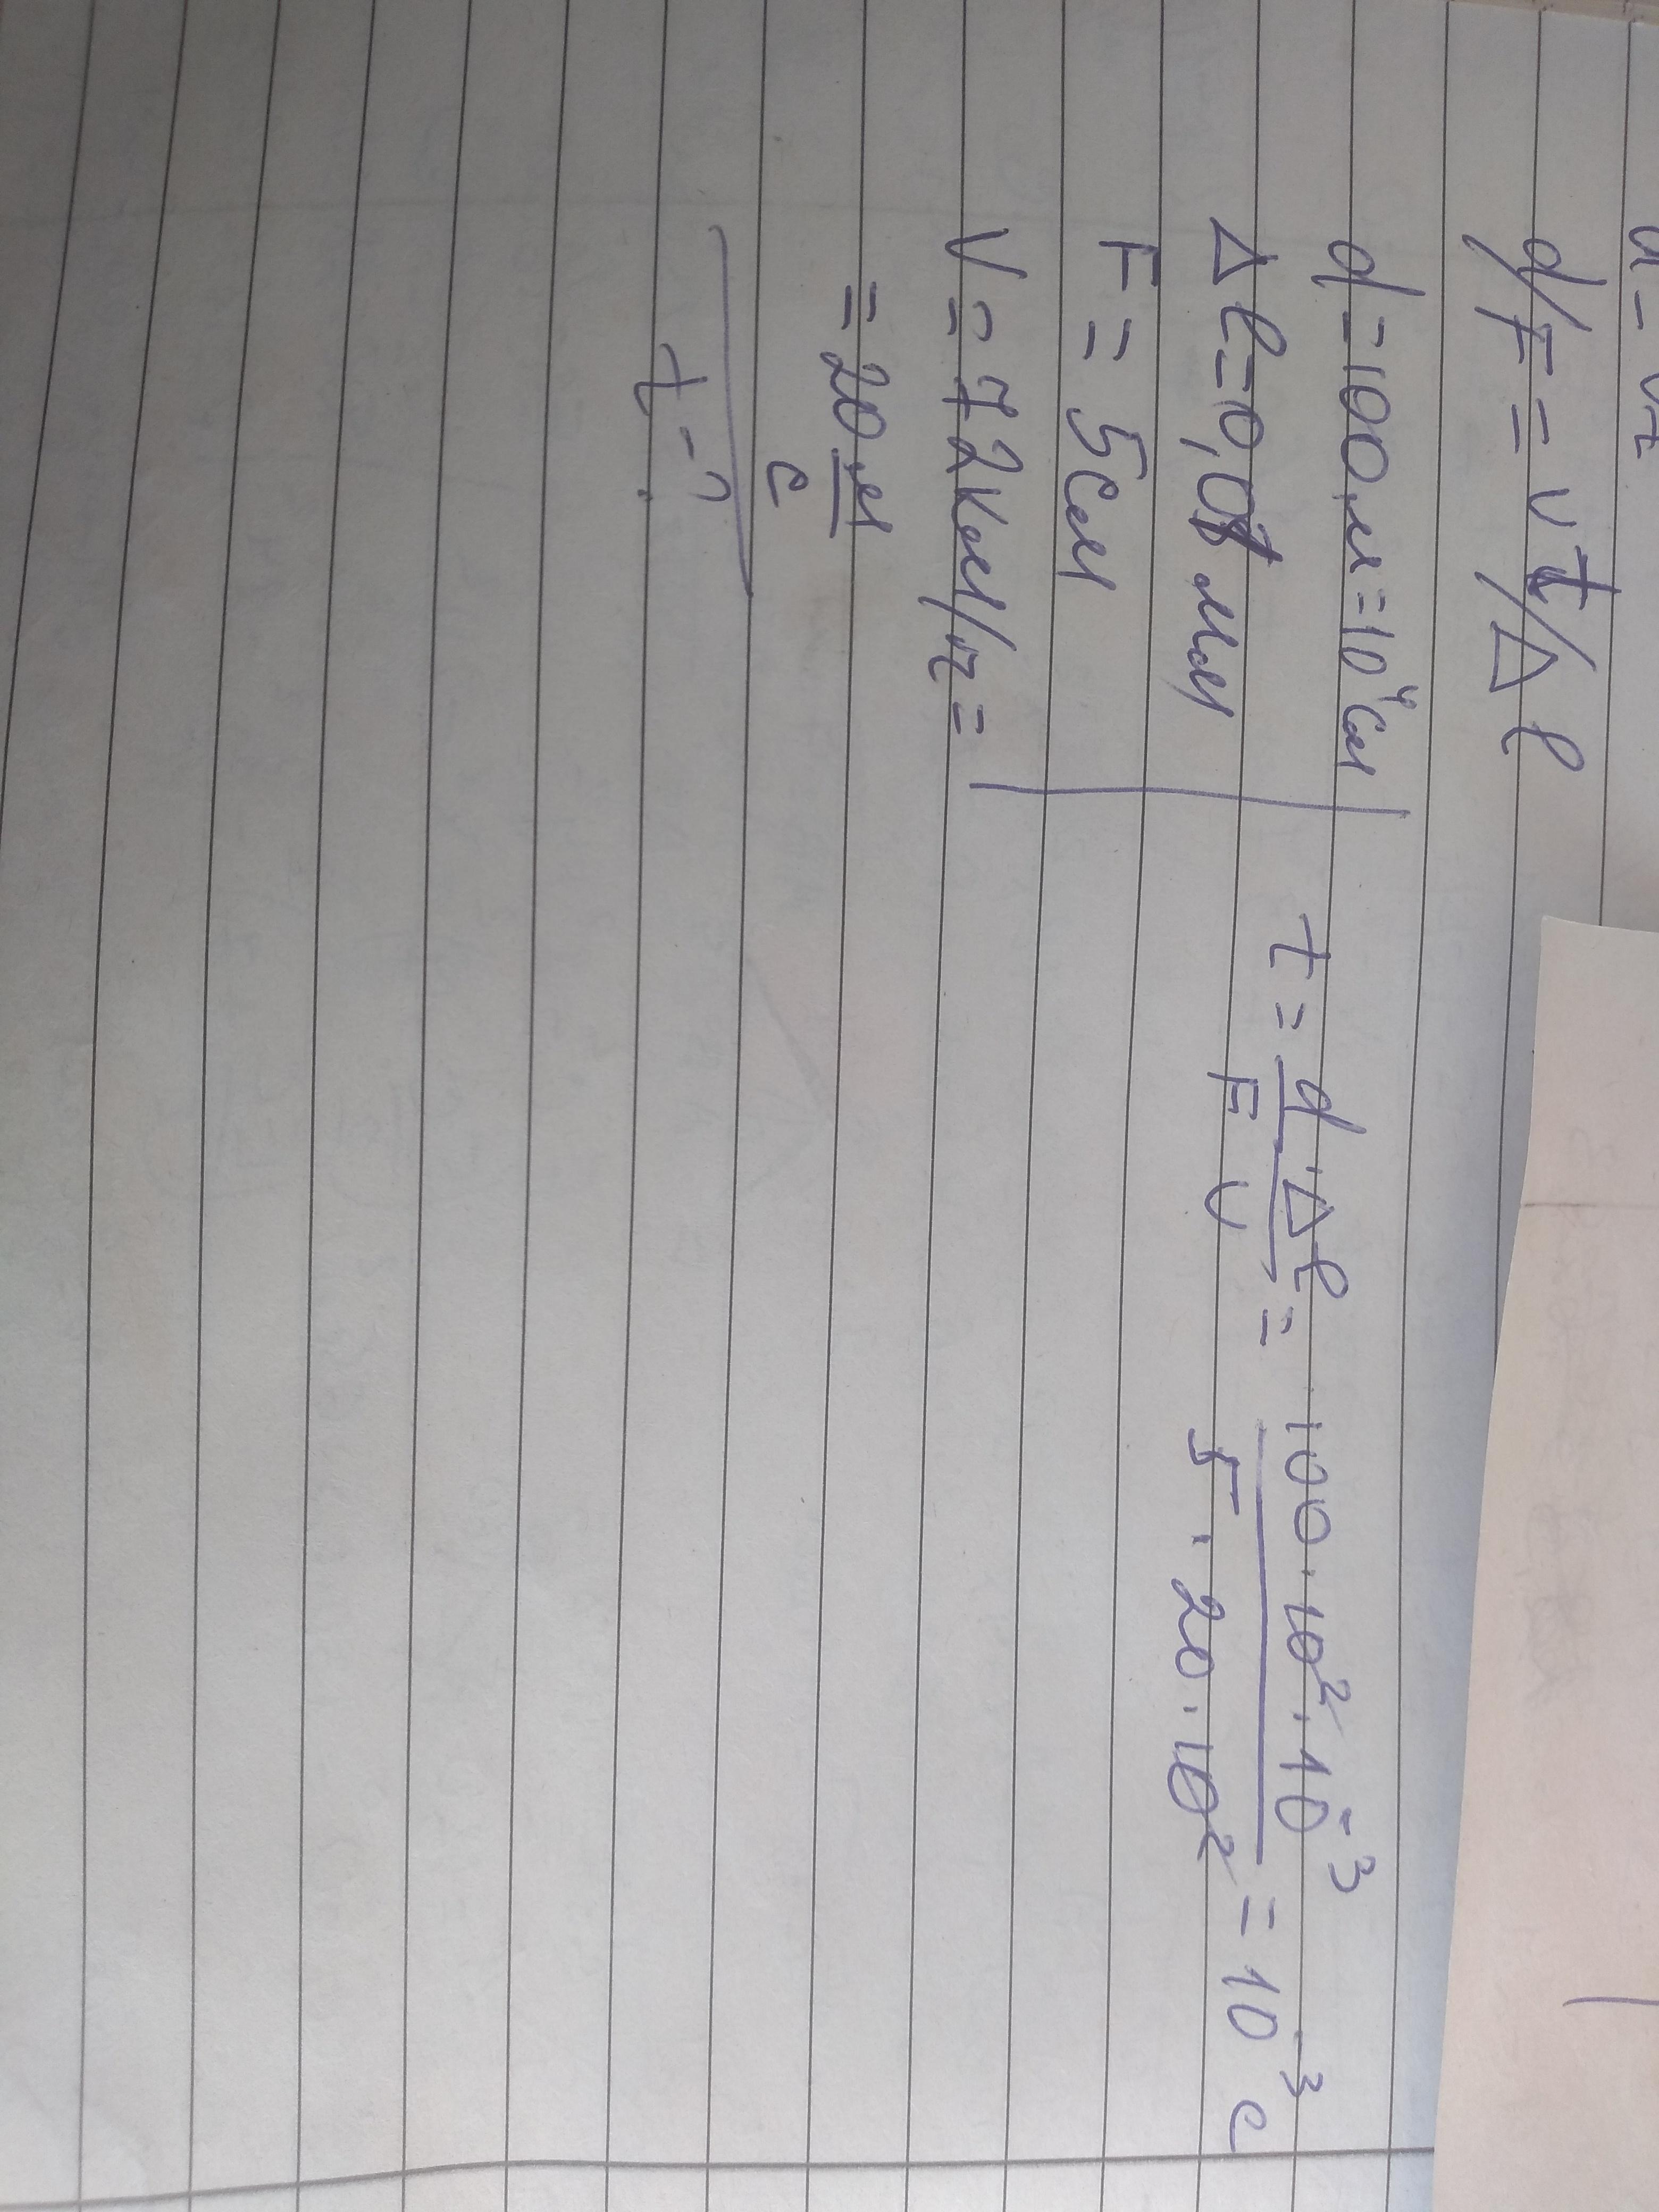 d/F = vt/Δl
d = 100 м = 10⁴ см
Δl = 0,01 мм
F = 5 см
V = 72 км/ч =
= 20 м/с
t - ?
t = d · Δl / F v = 100 · 10² · 10⁻³ / 5 · 20 · 10² = 10⁻³ с